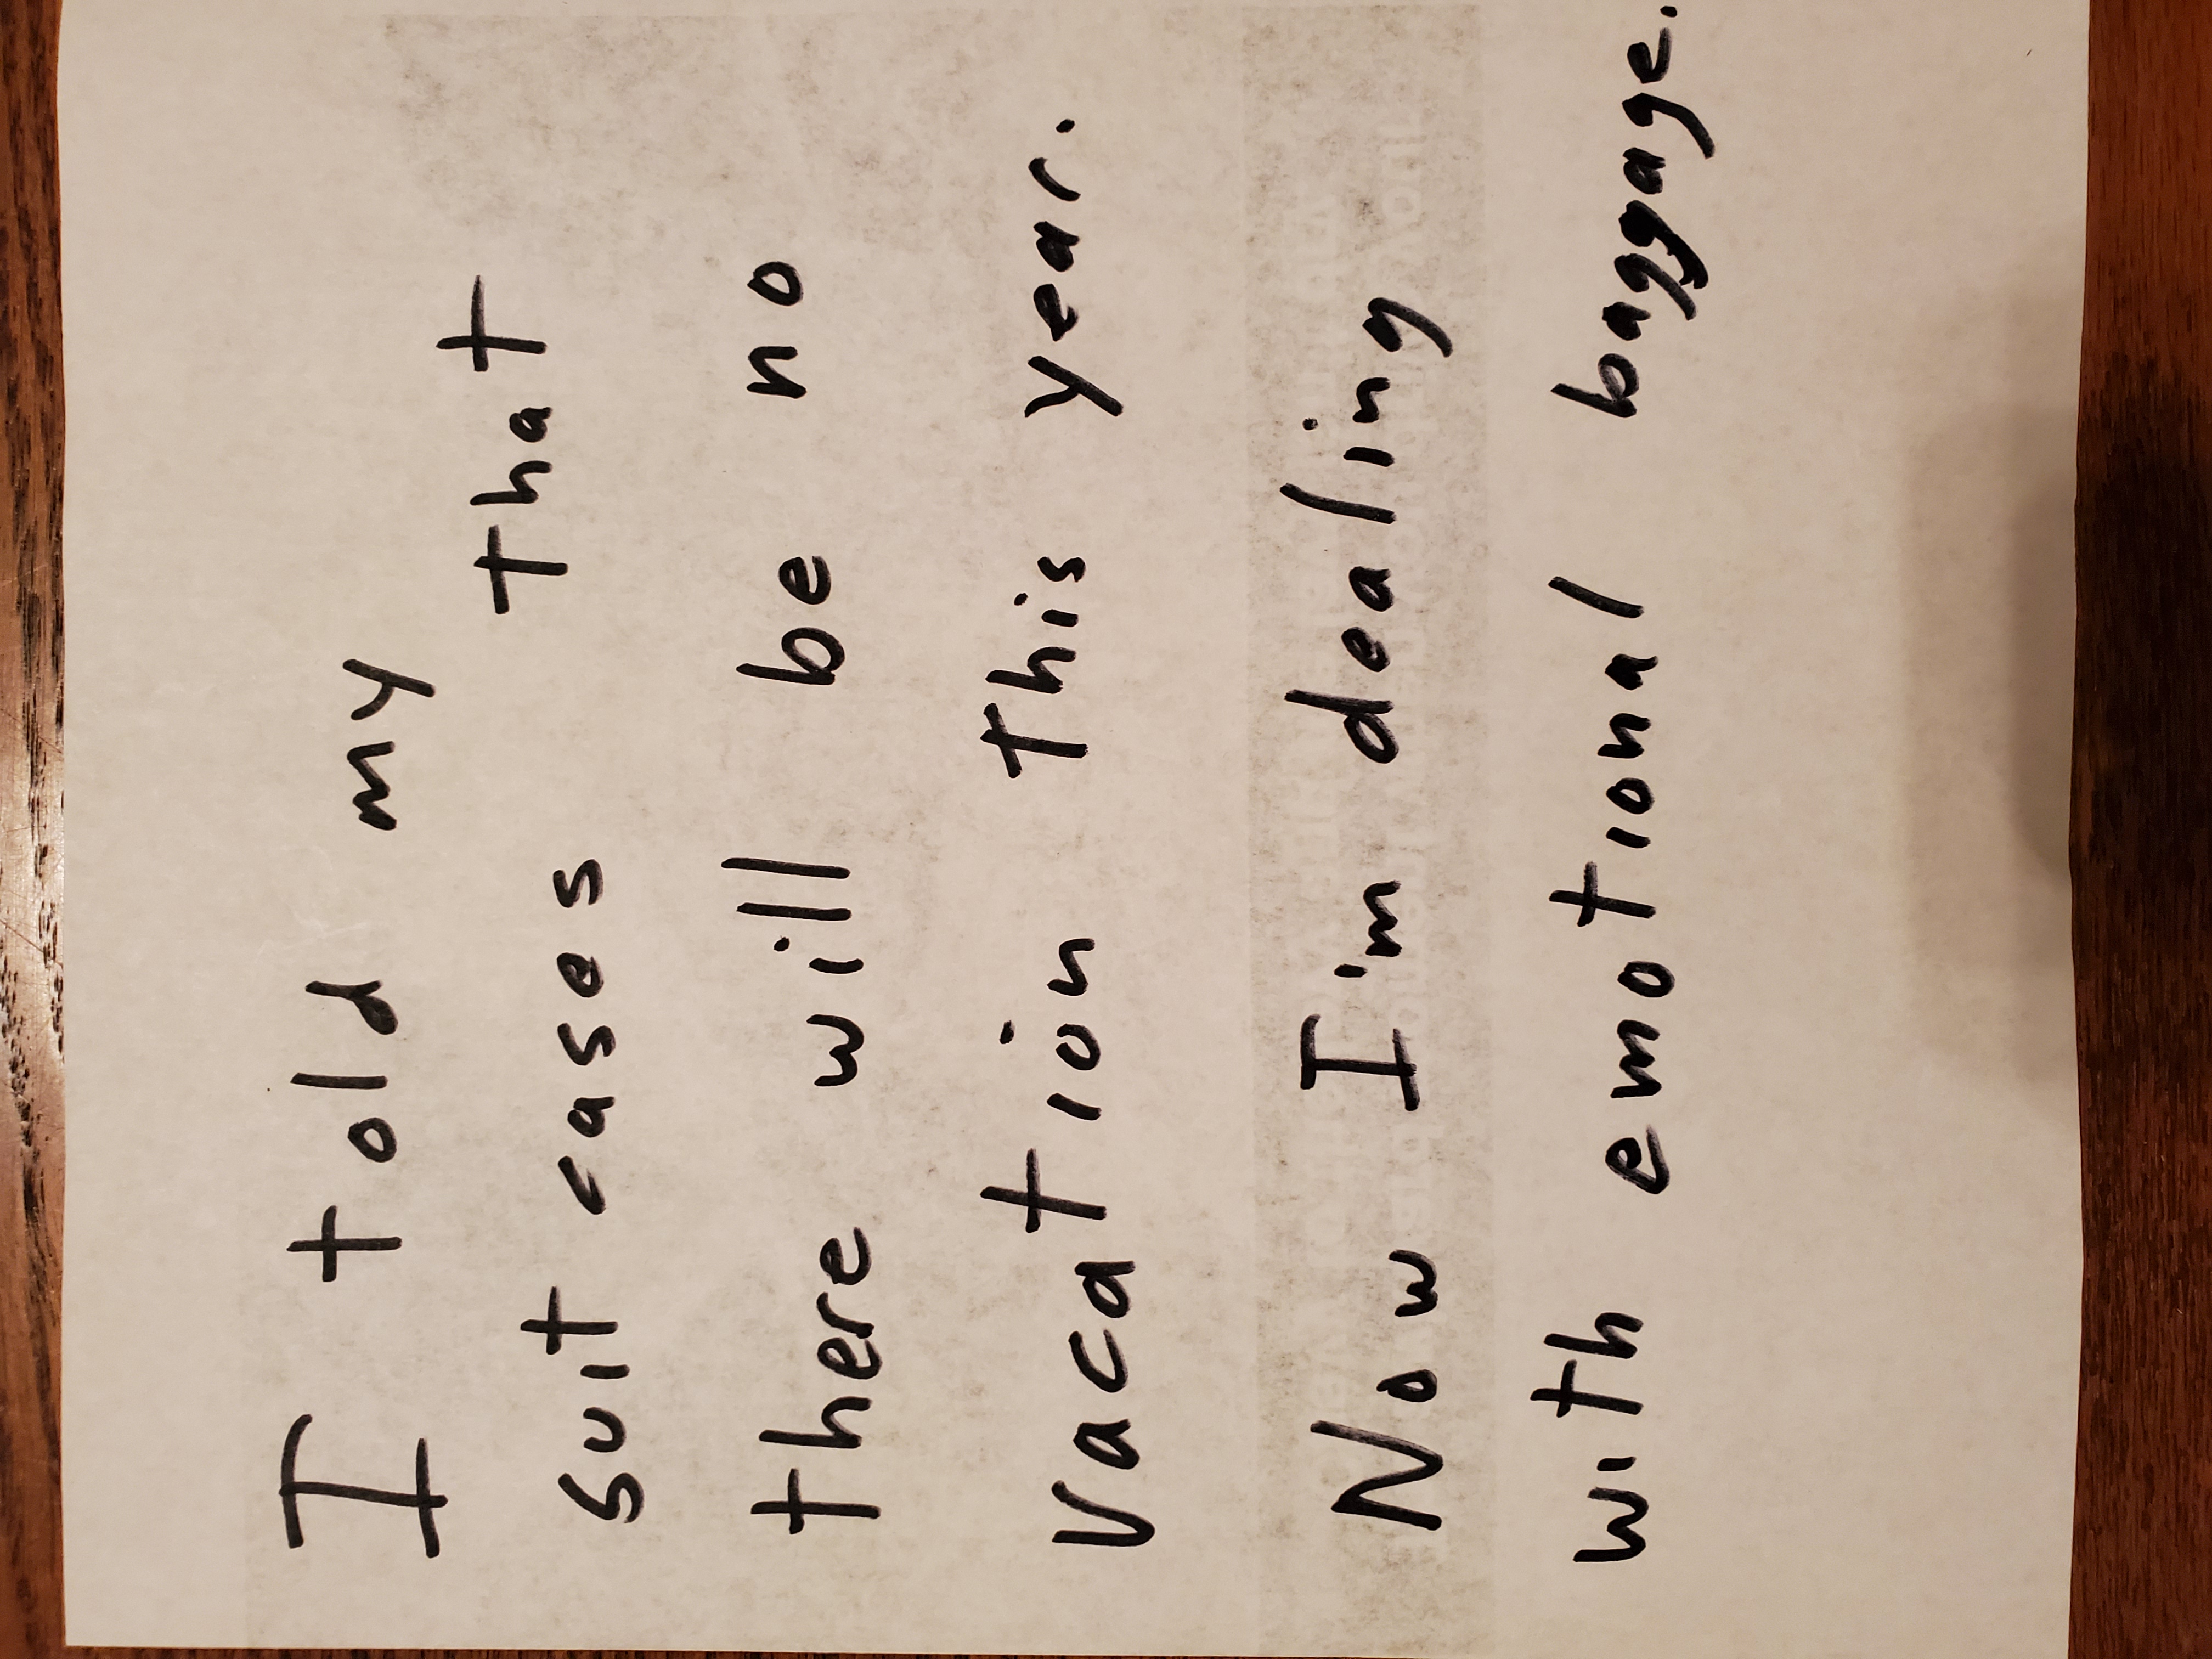 I told my
suit cases that
there will be no
vacation this year.
Now I'm dealing
with emotional baggage.